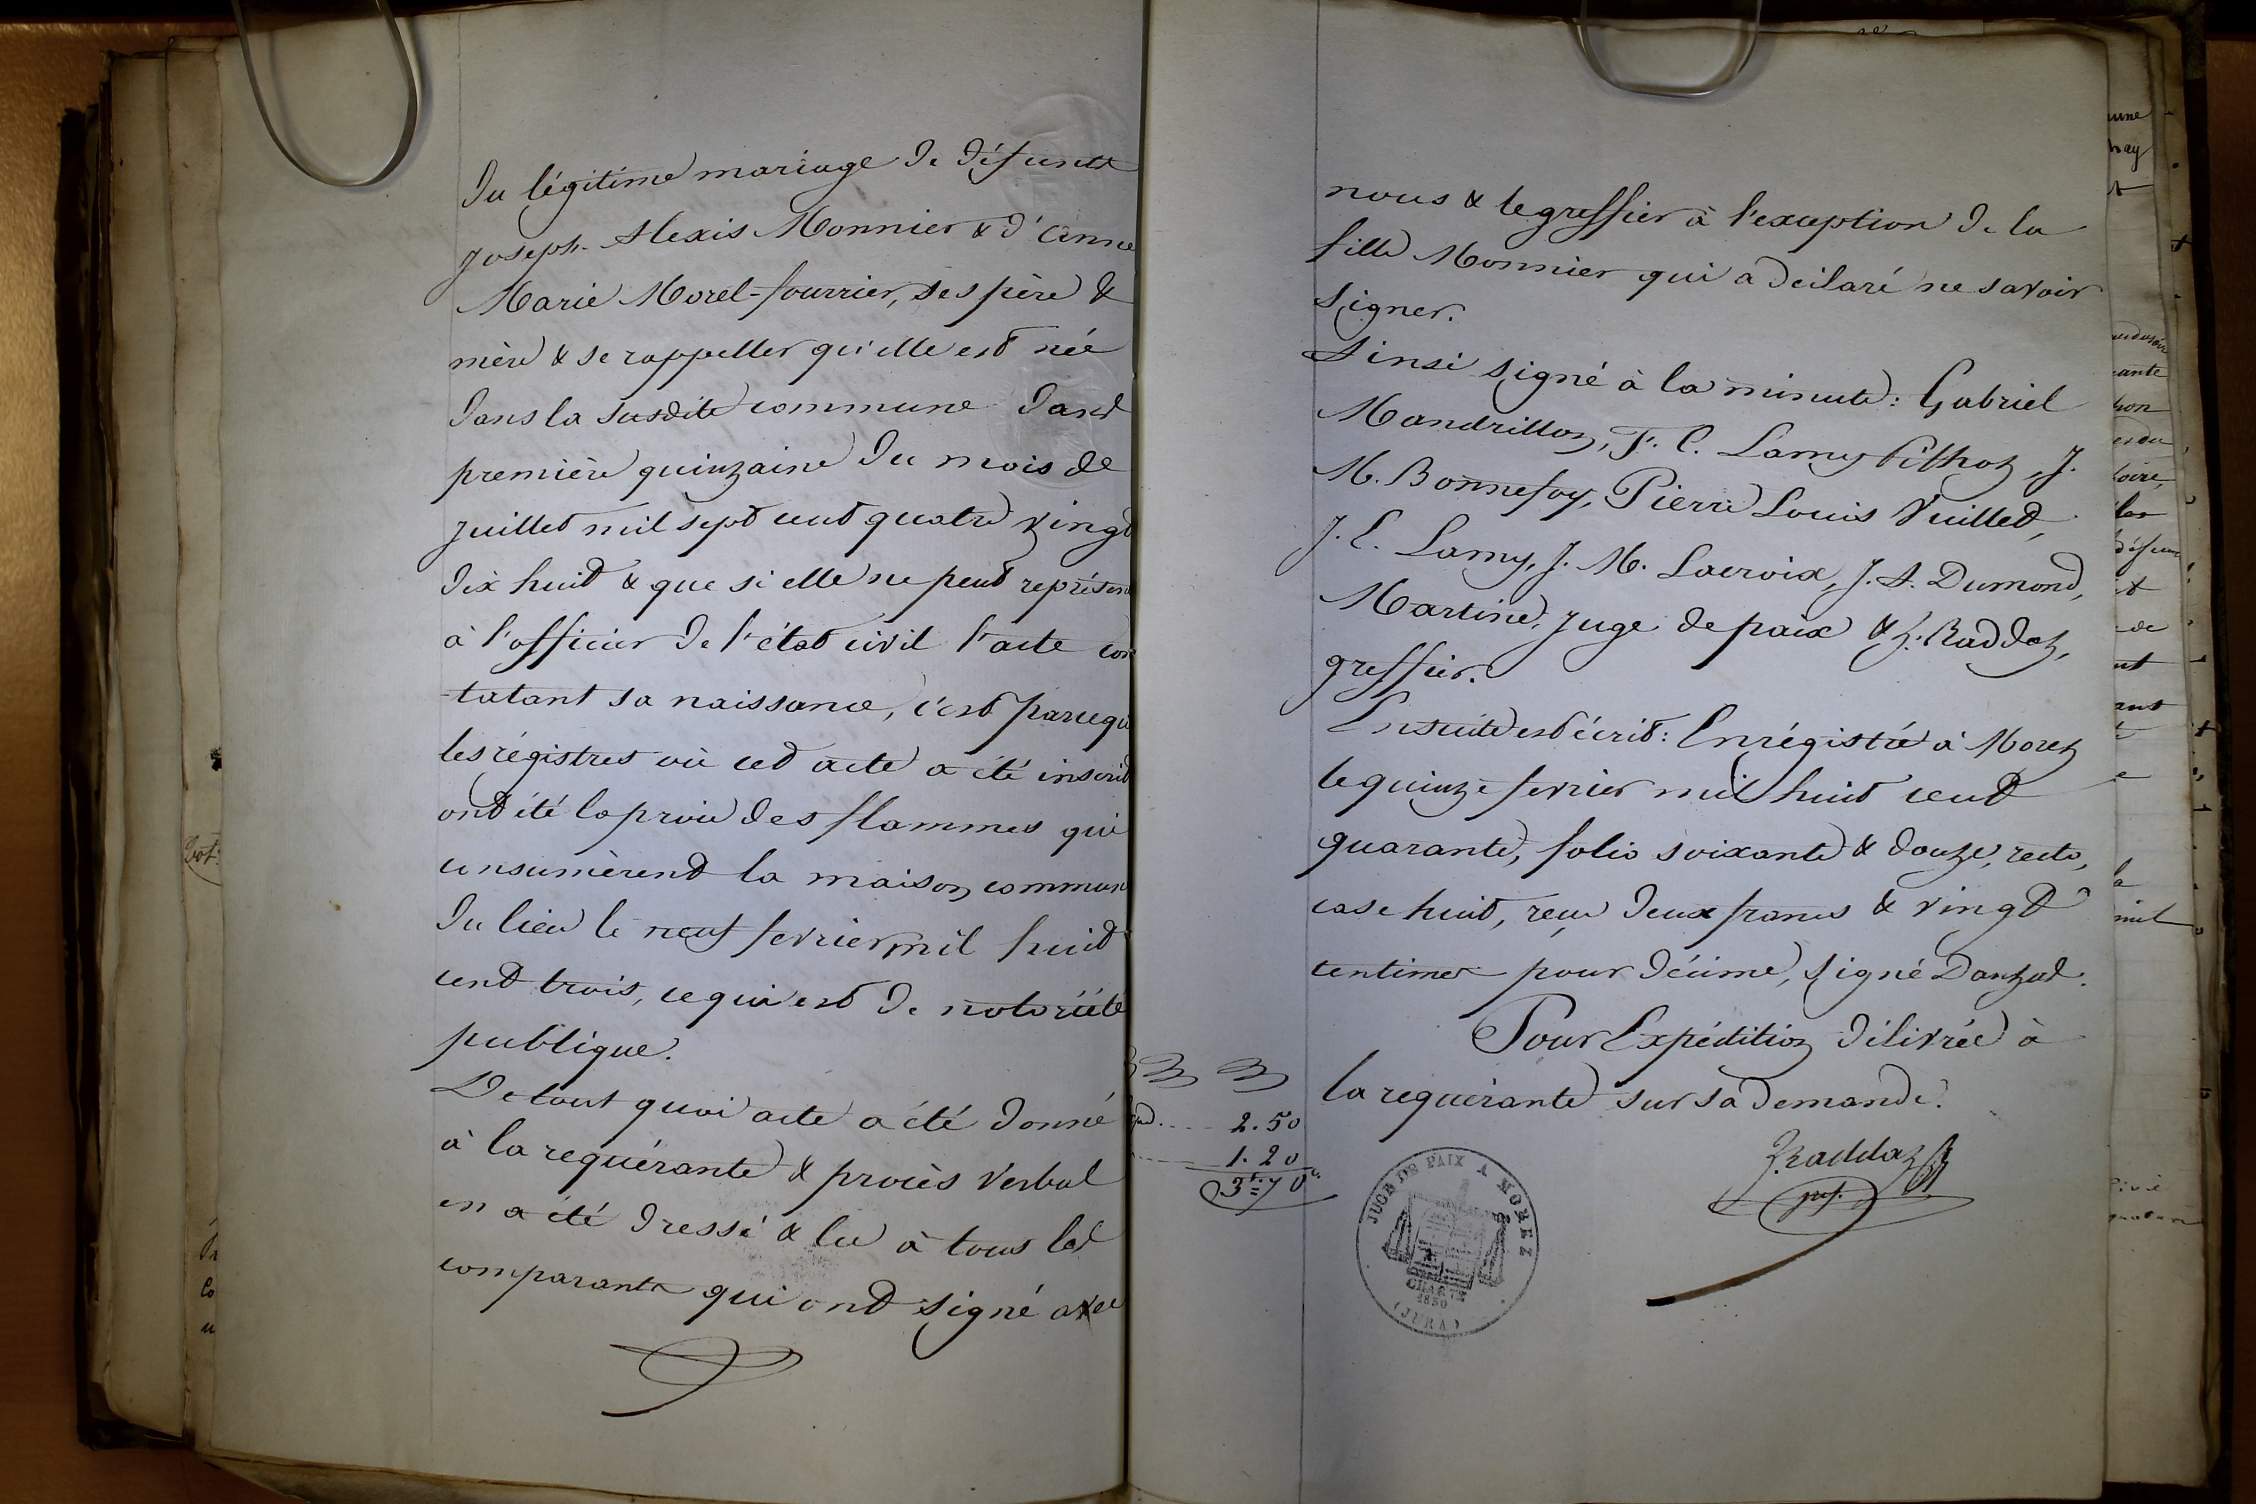 du légitime mariage de défunts
Joseph Alexis Monnier & d'anne
Marie Morel-fourrier, ses père &
mère & se rappeller qu'elle est née
dans la susdite commune dans
première quinzaine du mois de
juillet mil sept cent quatre vingt
dix huit & que si elle ne peut représen
à l'officier de l'état civil l'acte con
-tatant sa naissance, c'est parcequ
les régistres où cet acte a été inscrit
ont été la proie des flammes qui
consumèrent la maison commun
du lieu le neuf fevrier mil huit
cent trois, ce qui est de notoriété
publique.
De tout quoi acte a été donné
à la requérante & procès verbal
en a été dressé & lu à tous les
comparants qui ont signé avec
nous & le greffier à l'exception de la
fille Monnier qui a déclaré ne savoir
signer.
Ainsi signé à la minute: Gabriel
Mandrillon, F. C. Lamy J.
M. Bonnefoy, Pierre Louis Vuillet,
J. C. Lamy, J. M. Lacroix, J. A. Dumont,
Martine, juge de paix & Z. Raddaz,
greffier.
Ensuite est écrit: Enrégistré à Morez
le quinze fevrier mil huit cent
quarante, folio soixante & douze, recto,
case huit, reçu deux francs & vingt
centimes pour décime, signé Danzat.
Pour Expédition délivrée à
la requérante sur sa demande.
2.50
1.20
3f.70c.
Z. Raddaz
gref.
JUGE DE PAIX A MOREZ
CHARTE
1830
(JURA)